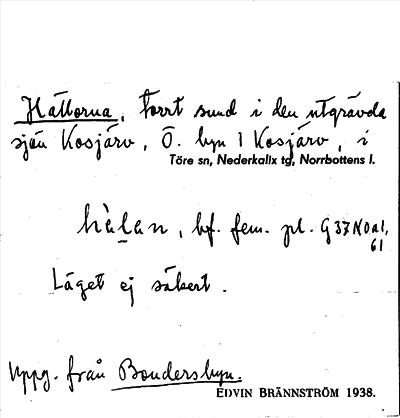 Hällorna, Torrt sund i den utgrävda
sjön Kosjärv, Ö. byn 1 Kosjärv, i
Töre sn, Nederkalix tg, Norrbottens l.
hä̀lan, bf. fem. pl. G 37 NO a 1,
61
Läget ej säkert.
Uppg. från Bondersbyn.
EDVIN BRÄNNSTRÖM 1938.